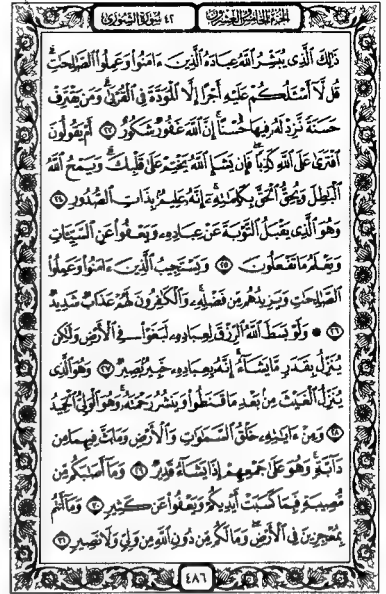 الجزء الخامس والعشرون ٤٢ سورة الشورى
ذَٰلِكَ ٱلَّذِى يُبَشِّرُ ٱللَّهُ عِبَادَهُ ٱلَّذِينَ ءَامَنُوا۟ وَعَمِلُوا۟ ٱلصَّـٰلِحَـٰتِ ۗ
قُل لَّآ أَسْـَٔلُكُمْ عَلَيْهِ أَجْرًا إِلَّا ٱلْمَوَدَّةَ فِى ٱلْقُرْبَىٰ ۗ وَمَن يَقْتَرِفْ
حَسَنَةً نَّزِدْ لَهُۥ فِيهَا حُسْنًا ۚ إِنَّ ٱللَّهَ غَفُورٌ شَكُورٌ ٢٣ أَمْ يَقُولُونَ
ٱفْتَرَىٰ عَلَى ٱللَّهِ كَذِبًا ۖ فَإِن يَشَإِ ٱللَّهُ يَخْتِمْ عَلَىٰ قَلْبِكَ ۗ وَيَمْحُ ٱللَّهُ
ٱلْبَـٰطِلَ وَيُحِقُّ ٱلْحَقَّ بِكَلِمَـٰتِهِۦٓ ۚ إِنَّهُۥ عَلِيمٌۢ بِذَاتِ ٱلصُّدُورِ ٢٤
وَهُوَ ٱلَّذِى يَقْبَلُ ٱلتَّوْبَةَ عَنْ عِبَادِهِۦ وَيَعْفُوا۟ عَنِ ٱلسَّيِّـَٔاتِ
وَيَعْلَمُ مَا تَفْعَلُونَ ٢٥ وَيَسْتَجِيبُ ٱلَّذِينَ ءَامَنُوا۟ وَعَمِلُوا۟
ٱلصَّـٰلِحَـٰتِ وَيَزِيدُهُم مِّن فَضْلِهِۦ ۚ وَٱلْكَـٰفِرُونَ لَهُمْ عَذَابٌ شَدِيدٌ
٢٦ ۞ وَلَوْ بَسَطَ ٱللَّهُ ٱلرِّزْقَ لِعِبَادِهِۦ لَبَغَوْا۟ فِى ٱلْأَرْضِ وَلَـٰكِن
يُنَزِّلُ بِقَدَرٍ مَّا يَشَآءُ ۚ إِنَّهُۥ بِعِبَادِهِۦ خَبِيرٌۢ بَصِيرٌ ٢٧ وَهُوَ ٱلَّذِى
يُنَزِّلُ ٱلْغَيْثَ مِنۢ بَعْدِ مَا قَنَطُوا۟ وَيَنشُرُ رَحْمَتَهُۥ ۚ وَهُوَ ٱلْوَلِىُّ ٱلْحَمِيدُ
٢٨ وَمِنْ ءَايَـٰتِهِۦ خَلْقُ ٱلسَّمَـٰوَٰتِ وَٱلْأَرْضِ وَمَا بَثَّ فِيهِمَا مِن
دَآبَّةٍ ۚ وَهُوَ عَلَىٰ جَمْعِهِمْ إِذَا يَشَآءُ قَدِيرٌ ٢٩ وَمَآ أَصَـٰبَكُم مِّن
مُّصِيبَةٍ فَبِمَا كَسَبَتْ أَيْدِيكُمْ وَيَعْفُوا۟ عَن كَثِيرٍ ٣٠ وَمَآ أَنتُم
بِمُعْجِزِينَ فِى ٱلْأَرْضِ ۖ وَمَا لَكُم مِّن دُونِ ٱللَّهِ مِن وَلِىٍّ وَلَا نَصِيرٍ ٣١
٤٨٦